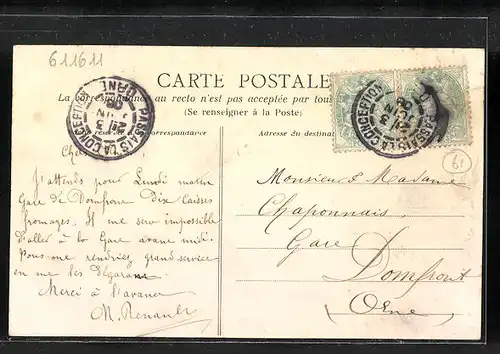 611611
CARTE POSTALE
La correspondance au recto n'est pas acceptée par tous
(Se renseigner à la Poste)
correspondance
Adresse du destinat
PASSAIS LA CONCEPTION
ORNE
PASSAIS LA CONCEPTION
J'attends pour Lundi matin
Gare de Domfront Dix Caisses
fromages. Il me sera impossible
d'aller à la Gare avant midi.
Vous me rendriez grand service
en me les
Merci à l'avance
M. Renault
Monsieur & Madame
Chaponnais
Gare
Domfront
(Orne)